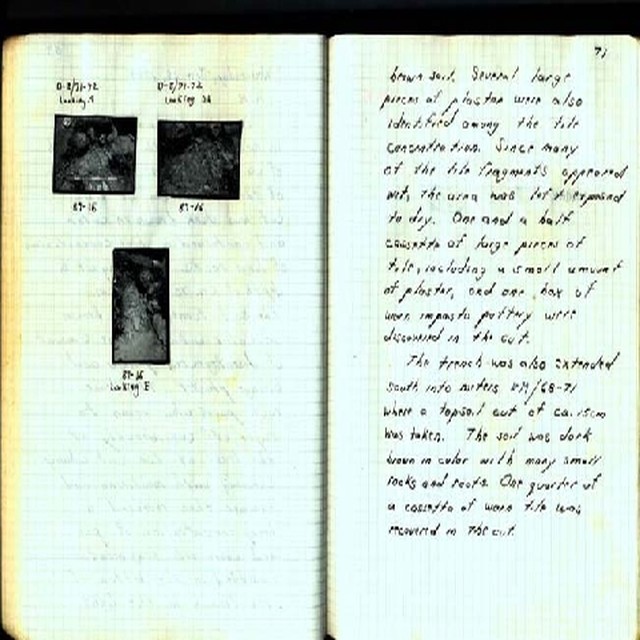 Looking
87-16
87-16
87-16
Looking E
71
brown soil. Several large
pieces of plaster were also
identified among the tile
concentration. Since many
of the tile fragments appeared
wet, the area was left exposed
to dry. One and a half
cassette of large pieces of
tile, including a small amount
of plaster, and one box of
worn impasto pottery were
discovered in the cut.
The trench was also extended
south into meters /68-71
where a topsoil cut of ca. 15cm
was taken. The soil was dark
brown in color with many small
rocks and roots. One quarter of
a cassette of worn tile was
recovered in the cut.